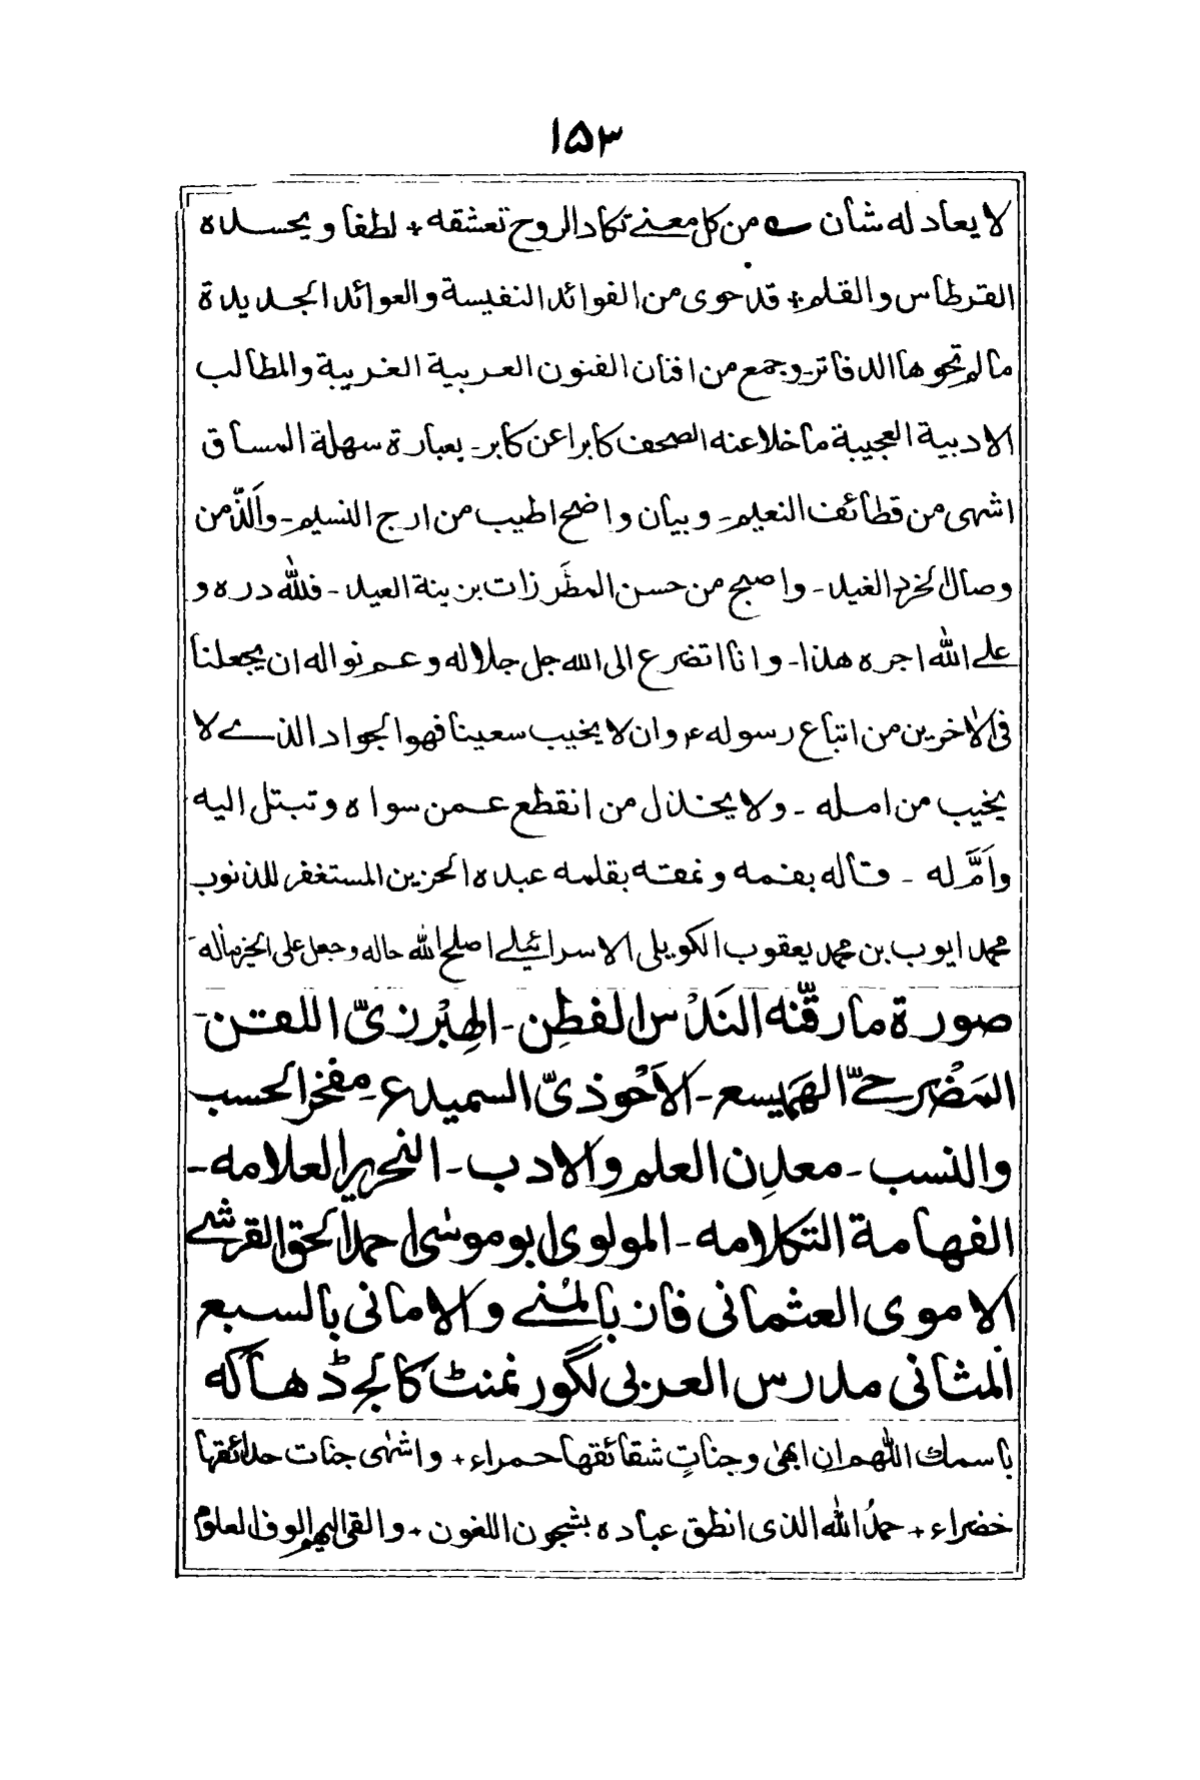 ١٥٣
لا يعادله شان ے من كل معنے تكاد الروح تعشقه + لطفا ويحسده
القرطاس والقلم + قد حوى من الفوائد النفيسة والعوائد الجديدة
ما لم تحوها الدفاتر - وجمع من افنان الفنون العربية الغريبة والمطالب
الادبية العجيبة ما خلا عنه الصحف كابرا عن كابر - بعبارة سهلة المساق
اشهى من قطائف النعيم - وبيان واضح اطيب من ارج النسيم - وألذّ من
وصال الخرد الغيد - واصبح من حسن المطَرزات بزينة العيد - فلله دره و
علے الله اجره هذا - وانا اتضرع الى الله جل جلاله وعم نواله ان يجعلنا
فى الاخرين من اتباع رسوله ؏ وان لا يخيب سعينا فهو الجواد الذے لا
يخيب من امله - ولا يخذل من انقطع عمن سواه وتبتل اليه
وأمَّله - قاله بفمه ونمقته بقلمه عبده الحزين المستغفر للذنوب
محمد ايوب بن محمد يعقوب الكويلى الاسرائيلے اصلح الله حاله وجعل على الخير مآله
صورة ما رقّنه النَدْس الفطِن - الهِبْرزىّ اللقن -
المَضْرحےّ الهَمَيسع - الاَحْوذىّ السميدع - مفخر الحسب
والنسب - معدِن العلم والادب - النحرير العلامه -
الفهامة التكلامه - المولوى ابو موسٰى احمد الحق القرشے
الاموى العثمانى فاز بالمُنے والامانى بالسبع
المثانى مدرس العربى لگورنمنٹ كالج ڈهاكه
باسمك اللهم ان ابهى وجناتٍ شقائقها حمراء + واشهٰى جنات حدائقها
خضراء + حمدُ الله الذى انطق عباده بشجون اللغون + والقى اليهم الوف العلوم